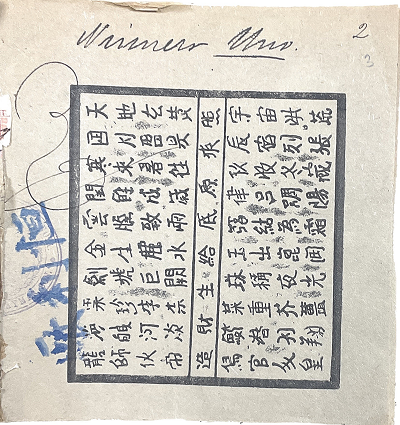 Numero Uno.
2
3
天地玄黃
日月盈昃
寒來暑往
閏餘成歲
雲騰致雨
金生麗水
劍號巨闕
菓珍李柰
海鹹河淡
龍師火帝
照來原底給生財造
宇宙洪荒
辰宿列張
秋收冬藏
律呂調陽
露結為霜
玉出崑岡
珠稱夜光
菜重芥薑
鱗潛羽翔
鳥官人皇